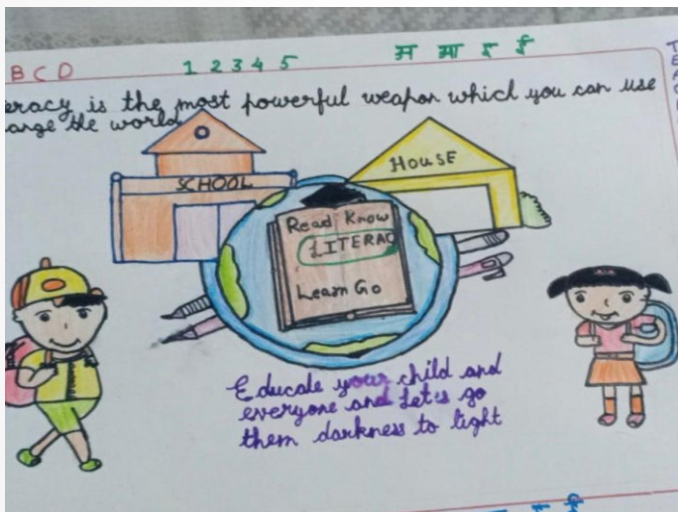 B C D
1 2 3 4 5
अ आ इ ई
eracy is the most powerful weapon which you can use
ange the world
SCHOOL
HOUSE
Read Know
LITERAC
Learn Go
Educate your child and
everyone and Let's go
them darkness to light